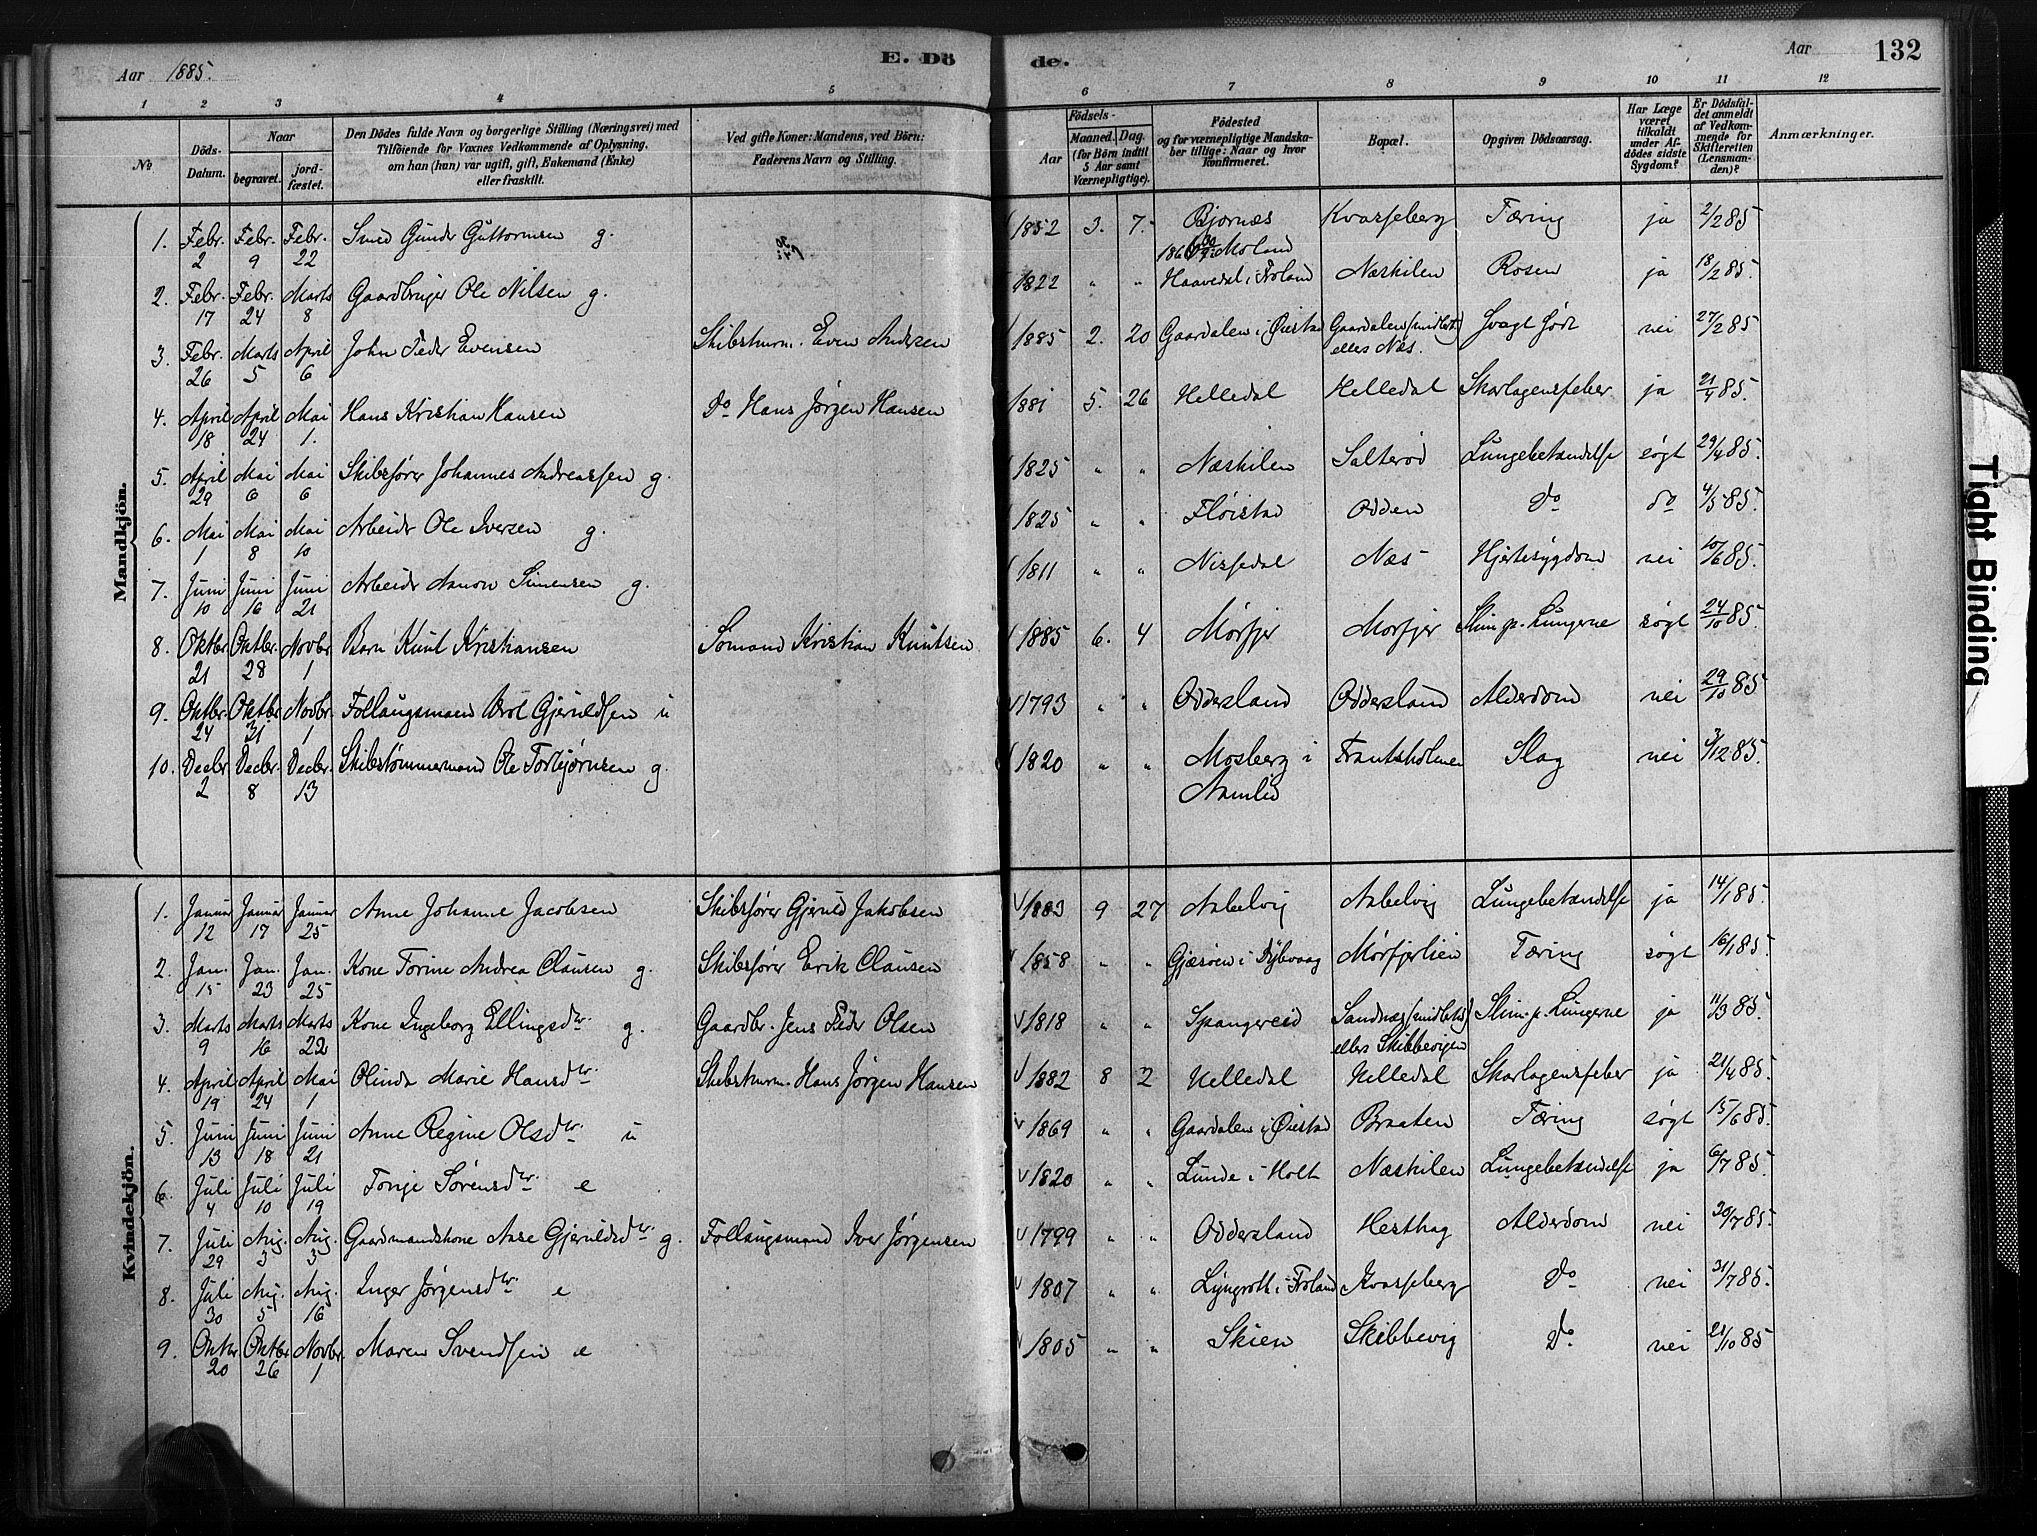 Aar 1885.
E. Dö
de.
Aar
132
1 2 3 4 5 6 7 8 9 10 11 12
№
Döds-
Datum.
Naar
begravet.
jord-
fæstet.
Den Dödes fulde Navn og borgerlige Stilling (Næringsvei) med
Tilföiende for Voxnes Vedkommende af Oplysning,
om han (hun) var ugift, gift, Enkemand (Enke)
eller fraskilt.
Ved gifte Koner: Mandens, ved Börn:
Faderens Navn og Stilling.
Födsels-
Aar
Maaned. Dag.
(for Börn indtil
5 Aar samt
Værnepligtige).
Födested
og for værnepligtige Mandska-
ber tillige: Naar og hvor
konfirmeret.
Bopæl.
Opgiven Dödsaarsag.
Har Læge
været
tilkaldt
under Af-
dödes sidste
Sygdom?
Er Dödsfal-
det anmeldt
af Vedkom-
mende for
Skifteretten
(Lensman-
den)?
Anmærkninger.
Mandkjön.
1. Febr. 2 Febr. 9 Febr. 22 Smed Gunder Guttormsen g. 1852 3. 7. Bjornæs Moland Kvasseberg Tæring ja 2/2 85
2. Febr. 17 Febr. 24 Marts 8 Gaardbruger Ole Nilsen g. 1822 " " Haavedal i Froland Næskilen Rosen ja 18/2 85.
3. Febr. 26 Marts 5 April 6 John Peder Evensen Skibstürm. Even Andersen 1885 2. 20 Gaardalen i Øiestad Gaardalen (midlert.) ellers Næs. Svagt født nei 27/2 85
4. April 18 April 24 Mai 1. Hans Kristian Hansen Do Hans Jørgen Hansen 1881 5. 26 Helledal Helledal Skarlagensfeber ja 21/4 85.
5. April 29 Mai 6 Mai 6 Skibsfører Johannes Andreassen g. 1825 " " Næskilen Salterød Lungebetændelse søgt 29/4 85.
6. Mai 1 Mai 8 Mai 10 Arbeider Ole Iversen g. 1825 " " Fløistad Odden do do 4/5 85.
7. Juni 10 Juni 16 Juni 21 Arbeider Aanon Simensen g. 1811 " " Nissedal Næs Hjertesygdom nei 10/6 85.
8. Oktbr. 21 Oktbr. 28 Novbr. 1 Barn Knut Kristiansen Sømand Kristian Knutsen 1885 6. 4 Mørfjer Mørfjer Slim p. Lungerne søgt 24/10 85.
9. Oktbr. 24 Oktbr. 31 Novbr. 1 Follaugsmand Gjeruldsen u 1793 " " Oddersland Oddersland Alderdom nei 29/10 85
10. Decbr. 2 Decbr. 8 Decbr. 13 Skibstømmermand Ole Torbjørnsen g. 1820 " " Mosberg i Aamlid Frantsholmen Slag nei 3/12 85.
Kvindekjön.
1. Januar 12 Januar 17 Januar 25 Anne Johanne Jacobsen Skibsfører Gjeruld Jakobsen 1883 9 27 Nabelvig Nabelvig Lungebetændelse ja 14/1 85.
2. Jan. 15 Jan. 23 Jan. 25 Kone Torine Andrea Clausen g. Skibsfører Erik Clausen 1858 " " Gjæsøen i Dybvaag Mørfjerlien Tæring søgt 16/1 85
3. Marts 9 Marts 16 Marts 22 Kone Ingeborg Ellingsdtr. g. Gaardbr. Jens Peder Olsen 1818 " " Spangereid Sandnæs (midlts) ellers Skibbevigen Slim p. Lungerne ja 11/3 85.
4. April 19 April 24 Mai 1 Olinda Marie Hansdtr. Skibsturm. Hans Jørgen Hansen 1882 8 2 Helledal Helledal Skarlagensfeber ja 21/4 85.
5. Juni 13 Juni 18 Juni 21 Anne Regine Olsdtr. u 1869 " " Gaardalen i Øiestad Braaten Tæring søgt 15/6 85.
6. Juli 4 Juli 10 Juli 19 Tonje Sørensdtr. e 1820 " " Lunde i Holt Næskilen Lungebetændelse ja 6/7 85.
7. Juli 29 Aug. 3 Aug. 3 Gaardmandskone Aase Gjeruldsdtr. g. Follaugsmand Iver Jørgensen 1799 " " Oddersland Hesthag Alderdom nei 30/7 85.
8. Juli 30 Aug. 5 Aug. 16 Inger Jørgensdtr. e 1807 " " Lyngroth i Froland Kvasseberg do nei 31/7 85.
9. Oktbr 20 Oktbr 26 Novbr. 1 Maren Svendsen e 1805 " " Skien Skibbevig do nei 21/10 85
Tight Binding